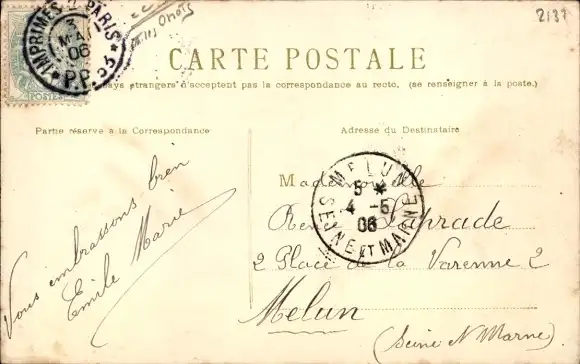 2137
IMPRIMÉS PARIS
MAI
06
P.P. 55
CARTE POSTALE
pays étrangers n'acceptent pas la correspondance au recto. (se renseigner à la poste.)
Partie réservée à la Correspondance
Adresse du Destinataire
Vous embrassons bien
Emile Marie
MELUN
5 *
4 - 5
06
SEINE ET MARNE
Mademoiselle
Laprade
2 Place de la Varenne 2
Melun
(Seine & Marne)